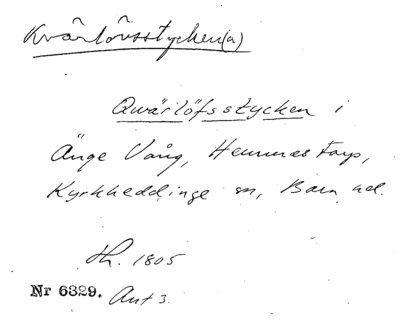 Kvärlövsstycken(a)
Qwärlöfsstycken i
Änge Vång, Hemmestorp,
Kyrkheddinge sn, Bara hd.
Sk. 1805
Nr 6329. Akt 3.